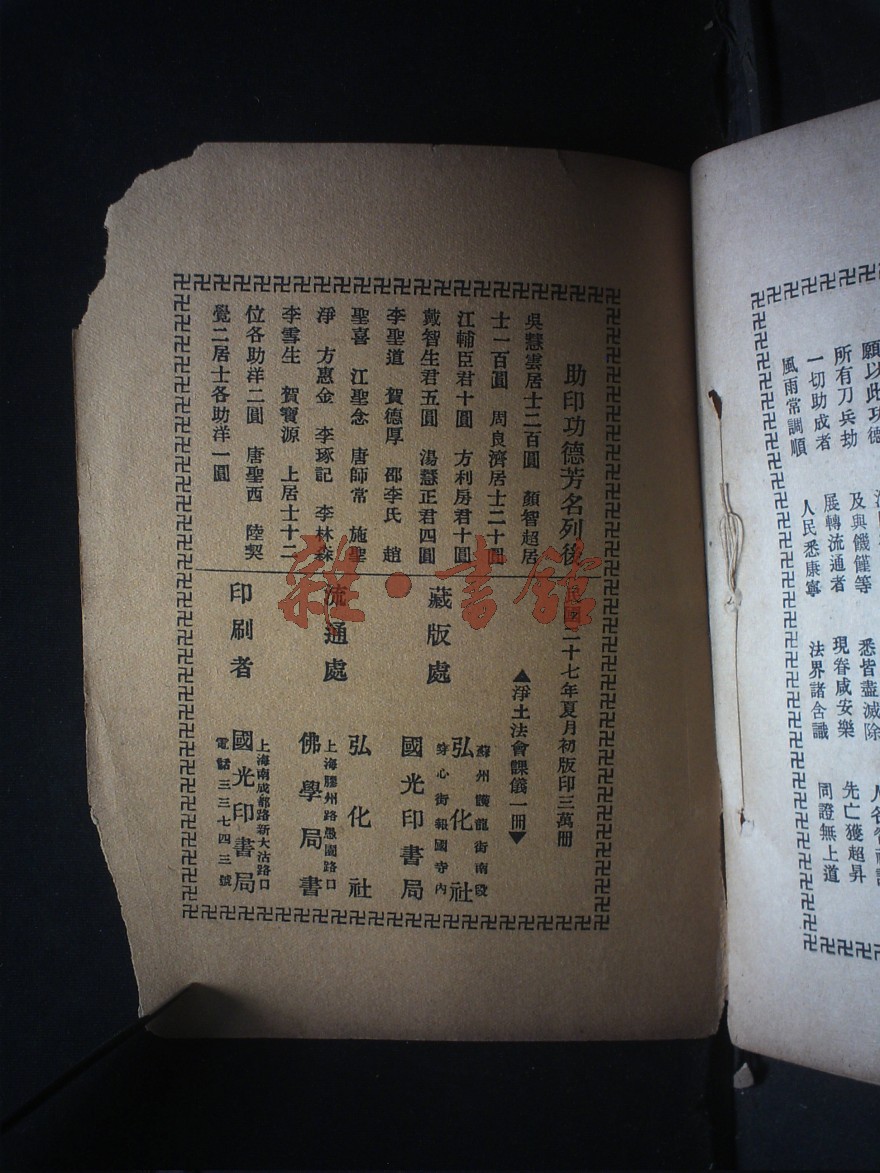 願以此功德
所有刀兵劫 及與饑饉等 悉皆盡滅除
一切助成者 展轉流通者 現眷咸安樂 先亡獲超昇
風雨常調順 人民悉康寧 法界諸含識 同證無上道
助印功德芳名列後
吳慧雲居士二百圓 顏智超居
士一百圓 周良濟居士二十圓
江輔臣君十圓 方利房君十圓
戴智生君五圓 湯慧正君四圓
李聖道 賀德厚 邵李氏 趙
聖喜 江聖念 唐師常 施聖
淨 方惠金 李琢記 李林森
李雪生 賀寶源 上居士十二
位各助洋二圓 唐聖西 陸契
覺二居士各助洋一圓
民國二十七年夏月初版印三萬册
▲淨土法會課儀一冊▼
藏版處
蘇州護龍街南段
弘化社
穿心街報國寺內
國光印書局
流通處
弘化社
上海膠州路愚園路口
佛學局書
印刷者
上海南成都路新大沽路口
國光印書局
電話三三七四三號
雜·書館